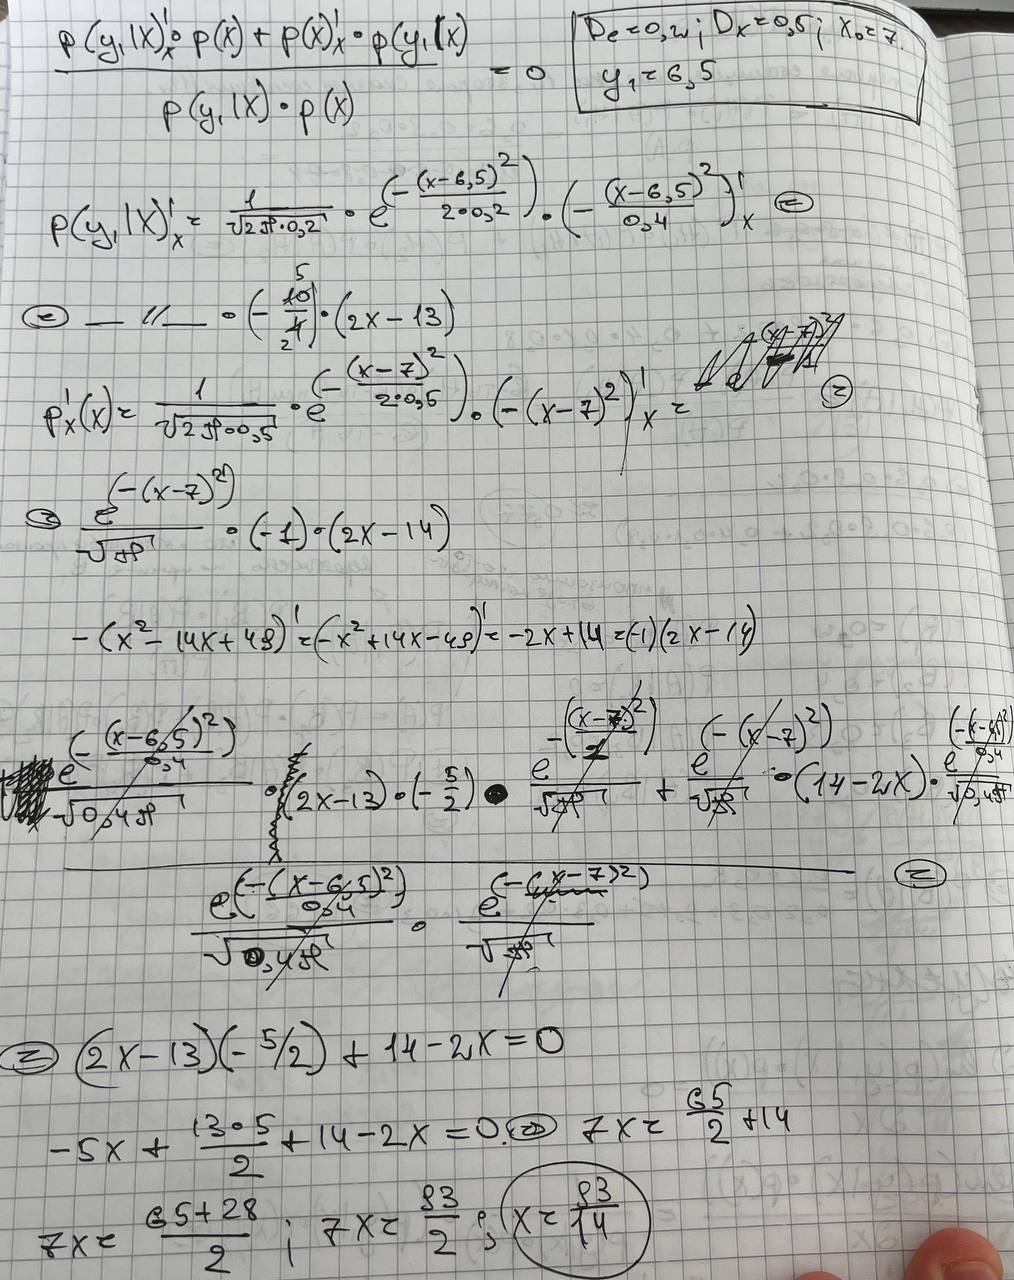 p(y₁|x)'ₓ · p(x) + p(x)'ₓ · p(y₁|x)
p(y₁|x) · p(x)
= 0
Dₑ = 0,2; Dₓ = 0,5; x₀ = 7.
y₁ = 6,5
p(y₁|x)'ₓ = 1/√(2π·0,2) · e^(-(x-6,5)²/(2·0,2)) · (-(x-6,5)²/0,4)'ₓ =
= — // — · (-10/4) 5/2 · (2x-13)
p'ₓ(x) = 1/√(2π·0,5) · e^(-(x-7)²/(2·0,5)) · (-(x-7)²)'ₓ = =
= e^(-(x-7)²)/√π · (-1) · (2x-14)
-(x² - 14x + 49)' = (-x² + 14x - 49)' = -2x + 14 = (-1)(2x-14)
e^(-(x-6,5)²/0,4)/√(0,4π) · (2x-13) · (-5/2) · e^(-(x-7)²/1)/√π + e^(-(x-7)²)/√π · (14-2x) · e^(-(x-6,5)²/0,4)/√(0,4π)
e^(-(x-6,5)²/0,4)/√(0,4π) · e^(-(x-7)²)/√π =
= (2x-13)(-5/2) + 14-2x = 0
-5x + 13·5/2 + 14-2x = 0 = 7x = 65/2 + 14
7x = 65+28/2 ; 7x = 93/2 ; x = 93/14